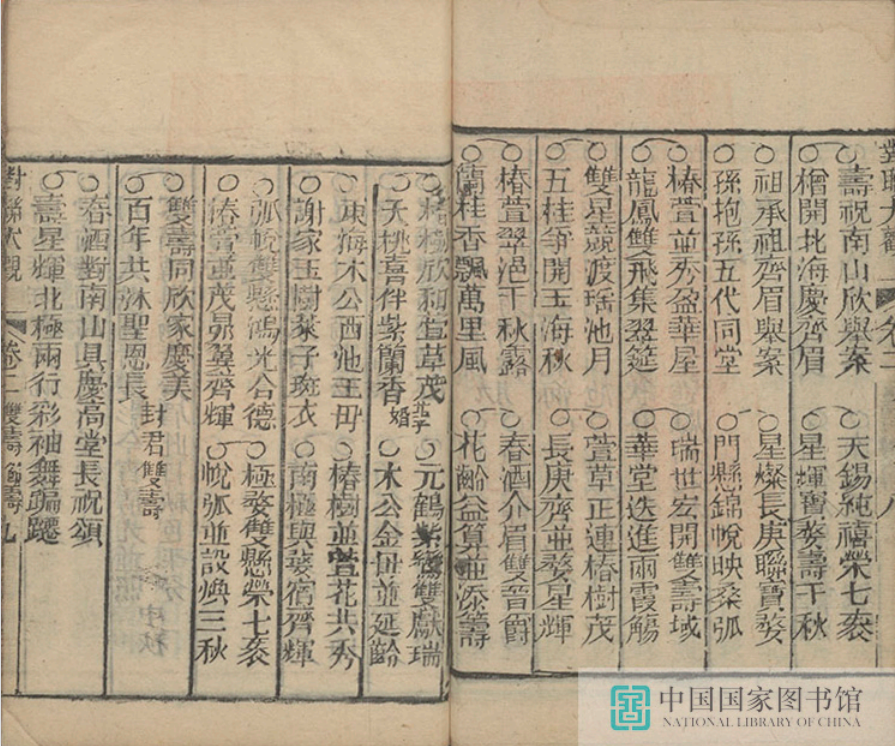 對聯大觀
壽祝南山欣舉案　天錫純禧榮七袠
樽開北海慶齊眉　星輝寶婺壽千秋
祖承祖齊眉舉案　星燦長庚聯寶婺
孫抱孫五代同堂　門懸錦帨映桑弧
椿萱並秀盈華屋　瑞世宏開雙壽域
龍鳳雙飛集翠筵　華堂迭進兩霞觴
雙星競渡瑤池月　萱草正連椿樹茂
五桂爭開玉海秋　長庚齊並婺星輝
椿萱翠浥千秋露　春酒介眉雙晉爵
蘭桂香飄萬里風　花齡益算並添籌
椿樹欣和萱草茂　並子婚　元鶴紫鸞雙獻瑞
夭桃喜伴紫蘭香　木公金母並延齡
東海木公西池王母　椿樹並萱花共秀
謝家玉樹萊子斑衣　南極與婺宿齊輝
弧帨雙懸鴻光合德　極婺雙懸榮七袠
椿萱並茂昴翼齊輝　帨弧並設煥三秋
雙壽同欣家慶美
百年共沐聖恩長　封君雙壽
春酒對南山具慶高堂長祝頌
壽星輝北極兩行彩袖舞蹁躚
對聯大觀　卷二　雙壽　九
中国国家图书馆
NATIONAL LIBRARY OF CHINA